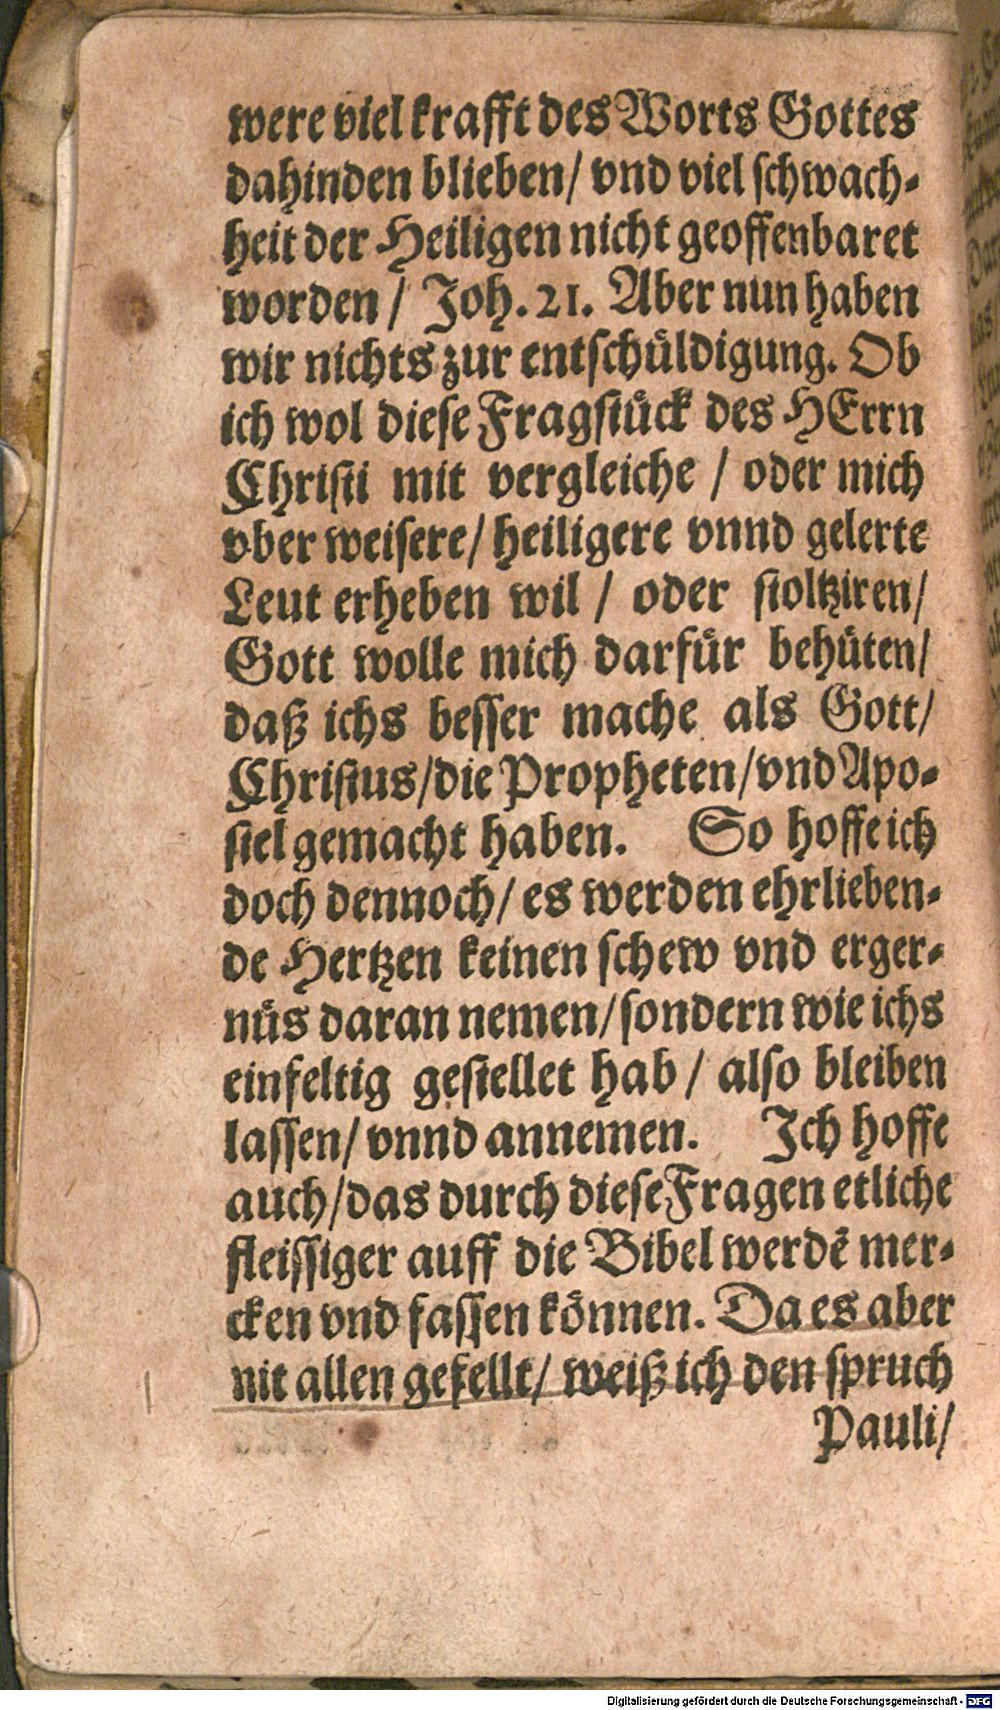 were viel krafft des Worts Gottes
dahinden blieben/ vnd viel schwach-
heit der Heiligen nicht geoffenbaret
worden / Joh. 21. Aber nun haben
wir nichts zur entschüldigung. Ob
ich wol diese Fragstück des HErrn
Christi mit vergleiche / oder mich
vber weisere/ heiligere vnnd gelerte
Leut erheben wil / oder stoltziren/
Gott wolle mich darfür behüten/
daß ichs besser mache als Gott/
Christus/die Propheten/vnd Apo-
stel gemacht haben. So hoffe ich
doch dennoch/ es werden ehrlieben-
de Hertzen keinen schew vnd erger-
nüs daran nemen/sondern wie ichs
einfeltig gestellet hab / also bleiben
lassen/ vnnd annemen. Ich hoffe
auch/das durch diese Fragen etliche
fleissiger auff die Bibel werdē mer-
cken vnd fassen können. Da es aber
nit allen gefellt/ weiß ich den spruch
Pauli/
Digitalisierung gefördert durch die Deutsche Forschungsgemeinschaft - DFG